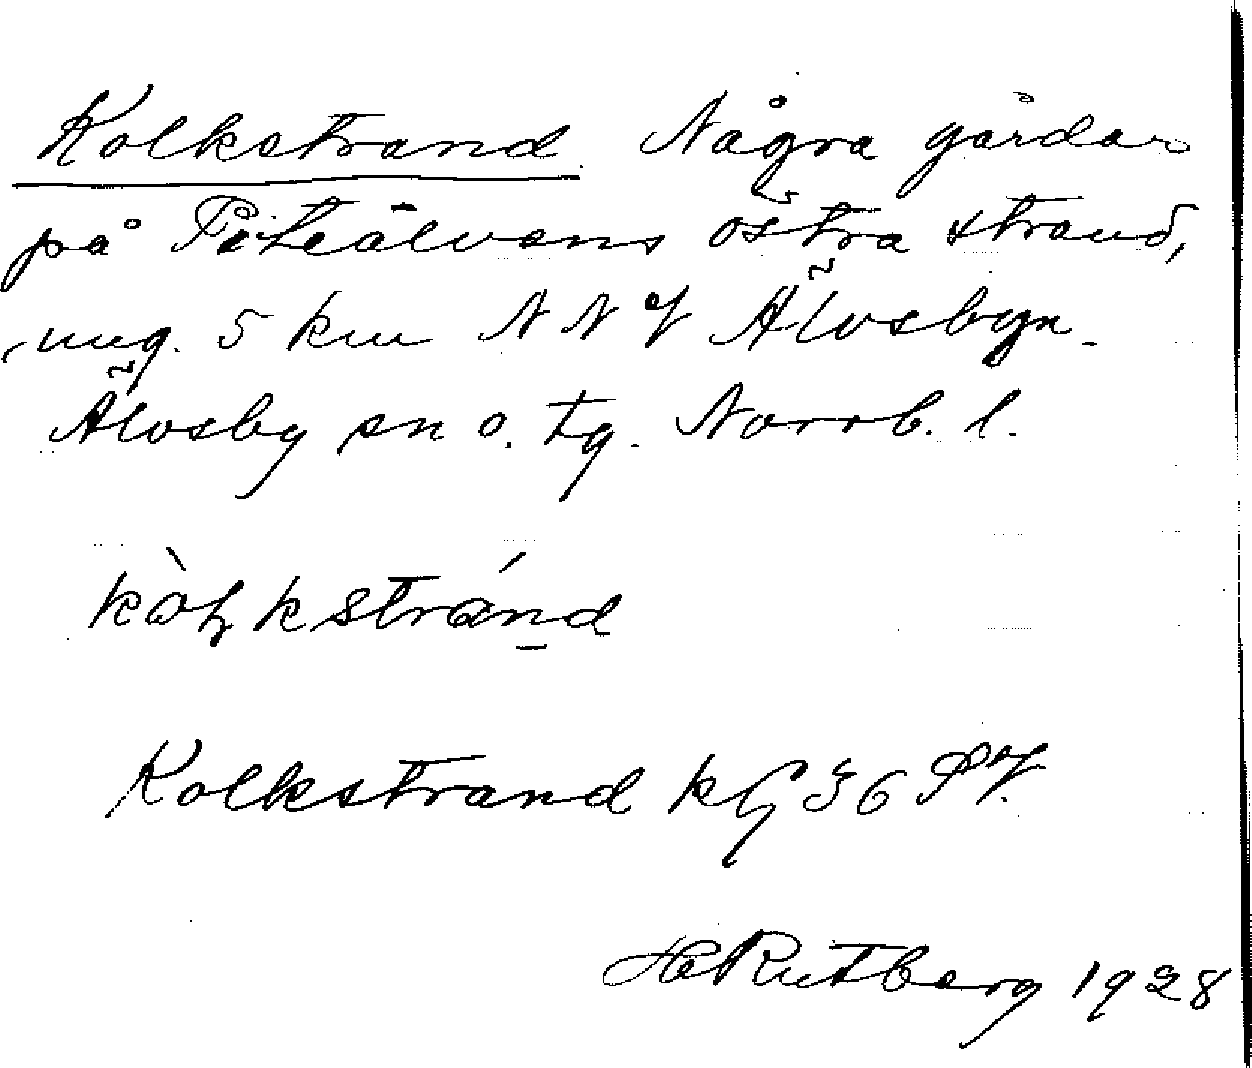 Kolkstrand. Några gårdar
på Piteälvens östra strand,
ung. 5 km NNV Älvsbyn.
Älvsby sn o. tg. Norrb. l.
kòlkstránd
Kolkstrand kG 36
H Rutberg 1928